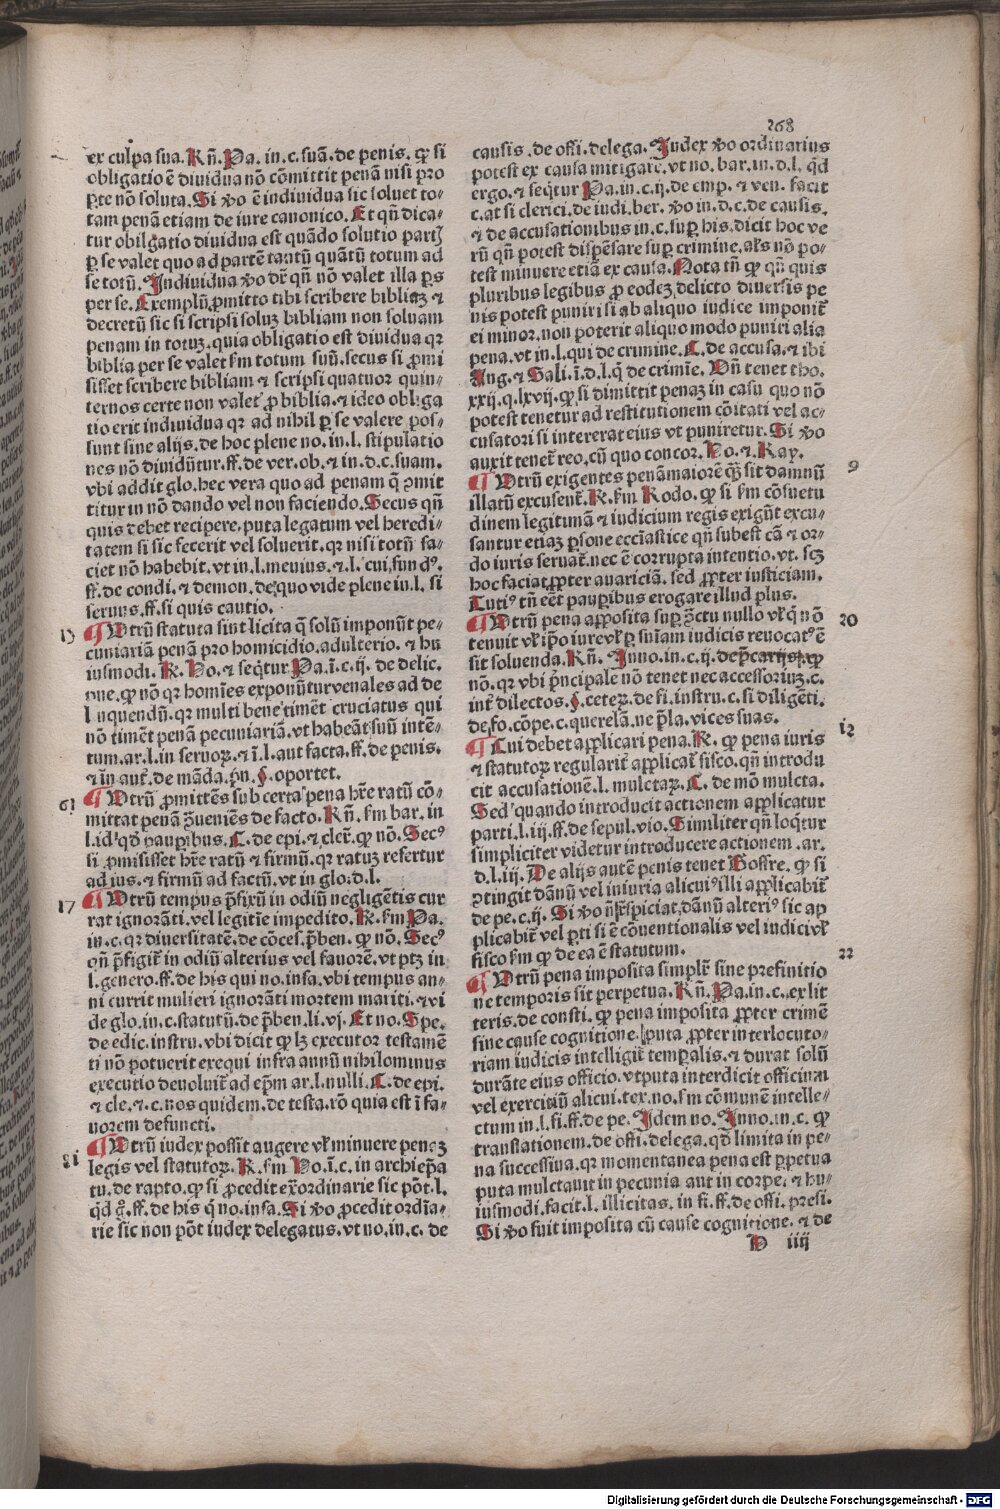 268
ex culpa sua. Rñ. Pa. in. c. suã. de penis. ꝙ si
obligatio ẽ diuidua nõ cõmittit penã nisi pro
ꝑte nõ soluta. Si ꝟo ẽ indiuidua sic soluet to-
tam penã etiam de iure canonico. Et qñ dica-
tur obligatio diuidua est quãdo solutio partĩ
ꝑ se valet quo ad partẽ tantũ quãtũ totum ad
se totũ. Indiuidua ꝟo dr̃ qñ nõ valet illa ꝑs
per se. Exemplũ ꝓmitto tibi scribere bibliaꝫ ⁊
decretũ sic si scripsi soluꝫ bibliam non soluam
penam in totuꝫ. quia obligatio est diuidua qꝛ
biblia per se valet ẜm totum suũ. secus si ꝓmi
sisset scribere bibliam ⁊ scripsi quatuor quin-
ternos certe non valet ꝓ biblia. ⁊ ideo obliga
tio erit indiuidua qꝛ ad nihil ꝑ se valere pos-
sunt sine alijs. de hoc plene no. in. l. stipulatio
nes nõ diuidũtur. ff. de ver. ob. ⁊ in. d. c. suam.
vbi addit glo. hec vera quo ad penam q̃ ꝓmit
titur in nõ dando vel non faciendo. Secus qñ
quis debet recipere. puta legatum vel heredi-
tatem si sic fecerit vel soluerit. qꝛ nisi totũ fa-
ciet nõ habebit. vt in. l. meuius. ⁊. l. cui fundꝰ.
ff. de condi. ⁊ demon. de quo vide plene in. l. si
seruus. ff. si quis cautio.
15 ¶ Utrũ statuta sint licita q̃ solũ imponũt pe-
cuniariã penã pro homicidio. adulterio. ⁊ hu
iusmodi. R. Ho. ⁊ seq̃tur Pa. ĩ. c. ij. de delic.
pue. ꝙ nõ qꝛ homĩes exponũtur venales ad de
linquendũ. qꝛ multi bene timẽt cruciatus qui
nõ timẽt penã pecuniariã. vt habeãt suũ intẽ-
tum. ar. l. in seruoꝝ. ⁊ ĩ. l. aut facta. ff. de penis.
⁊ in aut̃. de mãda. pñ. §. oportet.
16 ¶ Utrũ ꝓmittẽs sub certa pena hr̃e ratũ cõ-
mittat penã ꝓueniẽs de facto. Rñ. ẜm bar. in
l. id qd̃ pauꝑibus. C. de epi. ⁊ cler̃. ꝙ nõ. Secꝰ
si ꝓmisisset hr̃e ratũ ⁊ firmũ. qꝛ ratuꝫ refertur
ad ius. ⁊ firmũ ad factũ. vt in glo. d. l.
17 ¶ Utrũ tempus p̃fixũ in odiũ negligẽtis cur
rat ignorãti. vel legitĩe impedito. R. ẜm Pa.
in. c. qꝛ diuersitatẽ. de cõces. p̃ben. ꝙ nõ. Secꝰ
qñ p̃figit̃ in odiũ alterius vel fauorẽ. vt ptꝫ in
l. genero. ff. de his qui no. infa. vbi tempus an-
ni currit mulieri ignorãti mortem mariti. ⁊ vi
de glo. in. c. statutũ. de p̃ben. li. vj. Et no. Spe.
de edic. instru. vbi dicit ꝙ lꝫ executor testamẽ
ti nõ potuerit exequi infra annũ nihilominus
executio deuoluit̃ ad ep̃m ar. l. nulli. C. de epi.
⁊ cle. ⁊. c. nos quidem. de testa. rõ quia est ĩ fa-
uorem defuncti.
¶ Utrũ iudex possit augere vl̃ minuere penaꝫ
legis vel statutoꝝ. R. ẜm Ho. ĩ. c. in archiep̃a
tu. de rapto. ꝙ si ꝓcedit ex̃ordinarie sic põt. l.
qd̃ g̃. ff. de his q̃ no. infa. Si ꝟo ꝓcedit ordĩa-
rie sic non põt iudex delegatus. vt no. in. c. de
causis. de offi. delega. Iudex ꝟo ordinarius
potest ex causa mitigare. vt no. bar. in. d. l. qd̃
ergo. ⁊ seq̃tur Pa. in. c. ij. de emp. ⁊ ven. facit
c. at si clerici. de iudi. ber. ꝟo in. d. c. de causis.
⁊ de accusationibus in. c. suꝑ his. dicit hoc ve
rũ qñ potest dispẽsare suꝑ crimine. al̃s nõ po-
test minuere etiã ex causa. Nota tñ ꝙ qñ quis
pluribus legibus ꝓ eodeꝫ delicto diuersis pe
nis potest puniri si ab aliquo iudice imponit̃
ei minor. non poterit aliquo modo puniri alia
pena. vt in. l. qui de crimine. C. de accusa. ⁊ ibi
Ang. ⁊ Sali. ĩ. d. l. q̃ de crimĩe. Uñ tenet tho.
xxij. q. lxvij. ꝙ si dimittit penaꝫ in casu quo nõ
potest tenetur ad restitutionem cõitati vel ac-
cusatori si intererat eius vt puniretur. Si ꝟo
auxit tenet̃ reo. cũ quo concor. Ho. ⁊ Ray.
9 ¶ Utrũ exigentes penã maiorẽ q̃ꝫ sit damnũ
illatũ excusent̃. R. ẜm Rodo. ꝙ si ẜm cõsuetu
dinem legitimã ⁊ iudicium regis exigũt excu-
santur etiaꝫ ꝑsone ecclastice qñ subest cã ⁊ or-
do iuris seruat̃. nec ẽ corrupta intentio. vt. sꝫ
hoc faciat ꝓpter auariciã. sed ꝓpter iusticiam.
Tutiꝰ tñ eẽt pauꝑibus erogare illud plus.
20 ¶ Utrũ pena apposita suꝑ ꝯ̃ctu nullo vl̃ q̃ nõ
tenuit vl̃ ip̃o iure vl̃ ꝑ suĩam iudicis reuocatꝰ ẽ
sit soluenda. Rñ. Inno. in. c. ij. de p̃carijs. ꝙ
nõ. qꝛ vbi p̃ncipale nõ tenet nec accessoriuꝫ. c.
int̃ dilectos. §. ceteꝝ. de fi. instru. c. si diligẽti.
de fo. cõpe. c. querelã. ne p̃la. vices suas.
¶ Cui debet applicari pena. R. ꝙ pena iuris
⁊ statutoꝝ regularit̃ applicat̃ fisco. qñ introdu
cit accusationẽ. l. mulctaꝝ. C. de mõ mulcta.
Sed quando introducit actionem applicatur
parti. l. iij. ff. de sepul. vio. Similiter qñ loq̃tur
simpliciter videtur introducere actionem. ar.
d. l. iij. De alijs autẽ penis tenet Goffre. ꝙ si
ꝓtingit dãnũ vel iniuria alicuiꝰ illi applicabit̃
de pe. c. ij. Si ꝟo nõ respiciat dãnũ alteriꝰ sic ap
plicabit̃ vel ꝑti si ẽ cõuentionalis vel iudici vl̃
fisco ẜm ꝙ de ea ẽ statutum.
22 ¶ Utrũ pena imposita simplr̃ sine prefinitio
ne temporis sit perpetua. Rñ. Pa. in. c. ex lit
teris. de consti. ꝙ pena imposita ꝓpter crimẽ
sine cause cognitione. puta ꝓpter interlocuto-
riam iudicis intelligit̃ temꝑalis. ⁊ durat solũ
durãte eius officio. vt puta interdicit officium
vel exercitiũ alicui. tex. no. ẜm cõmunẽ intelle-
ctum in. l. fi. ff. de pe. Idem no. Inno. in. c. ꝙ
translationem. de offi. delega. qd̃ limita in pe-
na successiua. qꝛ momentanea pena est ꝑpetua
puta mulctauit in pecunia aut in corpe. ⁊ hu-
iusmodi. facit. l. illicitas. in fi. ff. de offi. presi.
Si ꝟo fuit imposita cũ cause cognitione. ⁊ de
D iiij
Digitalisierung gefördert durch die Deutsche Forschungsgemeinschaft - DFG